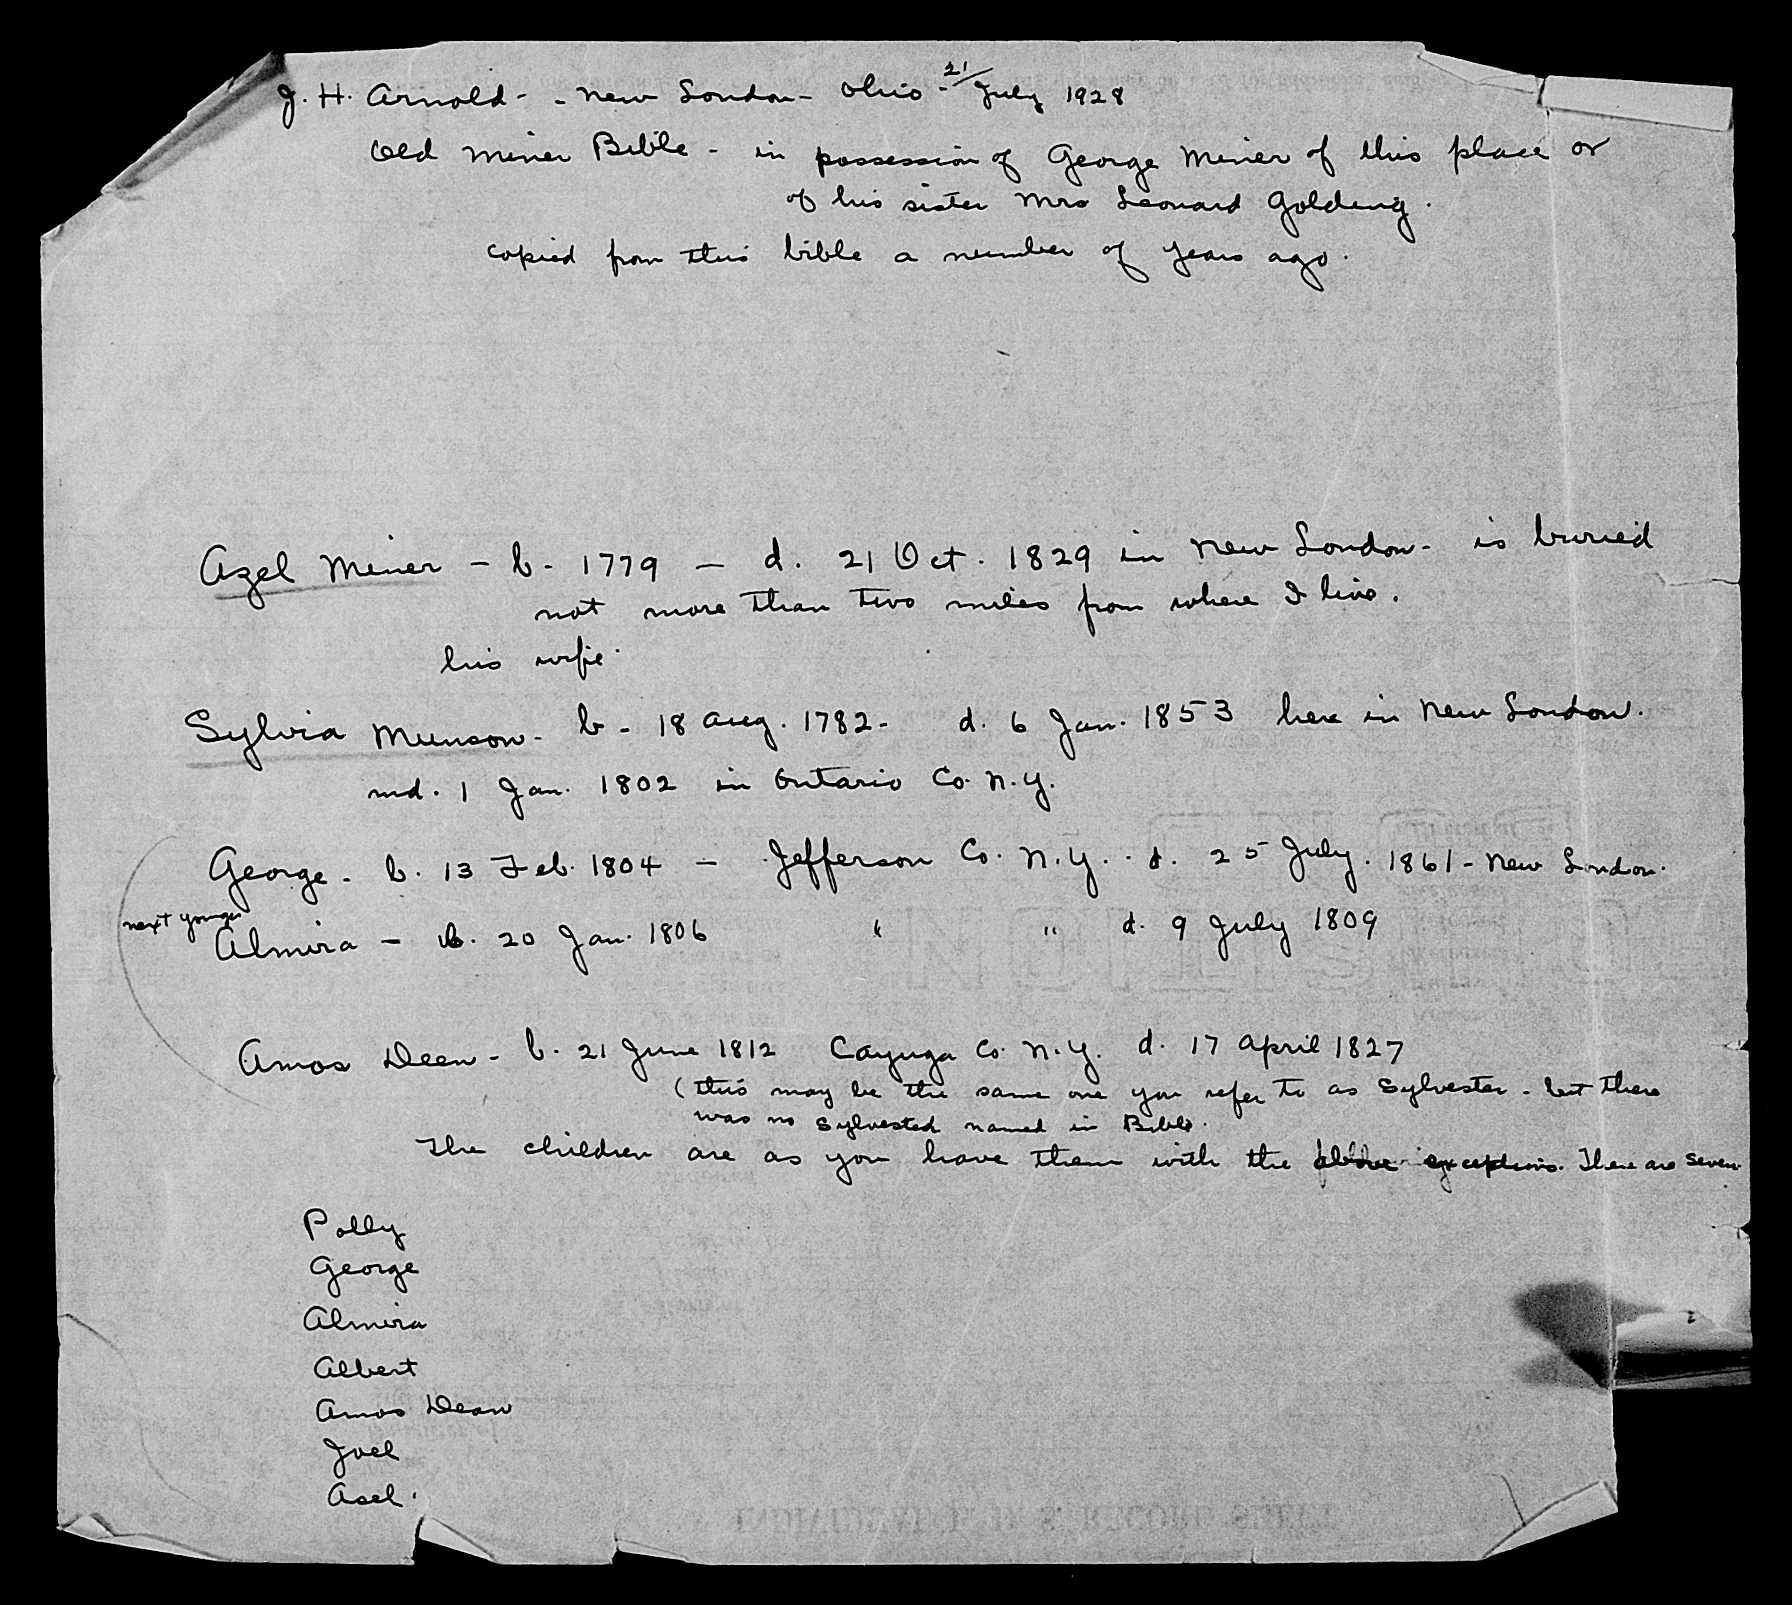 J. H. Arnold - - New London - Ohio - 21/ July 1928
Old Miner Bible - in possession of George Miner of this place or
of his sister Mrs Leonard Golding.
copied from this bible a number of years ago.
Azel Miner - b - 1779 - d. 21 Oct. 1829 in New London - is buried
not more than two miles from where I live.
his wife
Sylvia Munson - b - 18 Aug. 1782 - d. 6 Jan. 1853 here in New London.
md. 1 Jan. 1802 in Ontario Co. N.Y.
George - b. 13 Feb. 1804 - Jefferson Co. N.Y. d. 25 July. 1861 - New London.
next younger
Almira - b. 20 Jan. 1806 " " d. 9 July 1809
Amos Deen - b. 21 June 1812 Cayuga Co. N.Y. d. 17 April 1827
(this may be the same one you refer to as Sylvester - but there
was no Sylvested named in Bible.
The children are as you have them with the above exceptions. There are seven
Polly
George
Almira
Albert
Amos Dean
Joel
Asel.